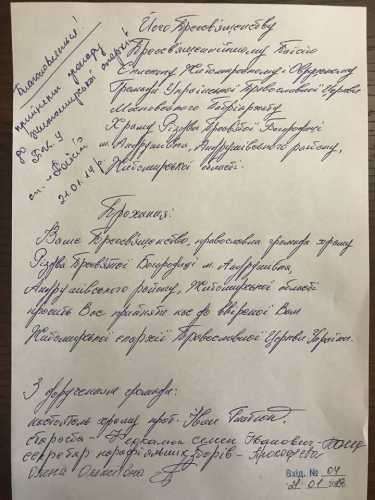 Благословення!
прийняти громаду
до Житомирської єпархії
ПЦУ
єп. Паїсій
21.01.19 р.
Його Преосвященству
Преосвященнійшому Паїсію
Єпископу Житомирському і Овруцькому
Громади Української Православної Церкви
Московського Патріархату
Храму Різдва Пресвятої Богородиці
м. Андрушівка, Андрушівського району,
Житомирської області.
Прохання:
Ваше Преосвященство, православна громада храму
Різдва Пресвятої Богородиці м. Андрушівка,
Андрушівського району, Житомирської області
просить Вас прийняти нас до ввіреної Вам
Житомирської єпархії Православної Церкви України.
З дорученням громади:
настоятель храму прот. Іван
староста - семен Іванович -
секретар парафіяльних зборів -
Олена
Вхід. № 04
21.01.